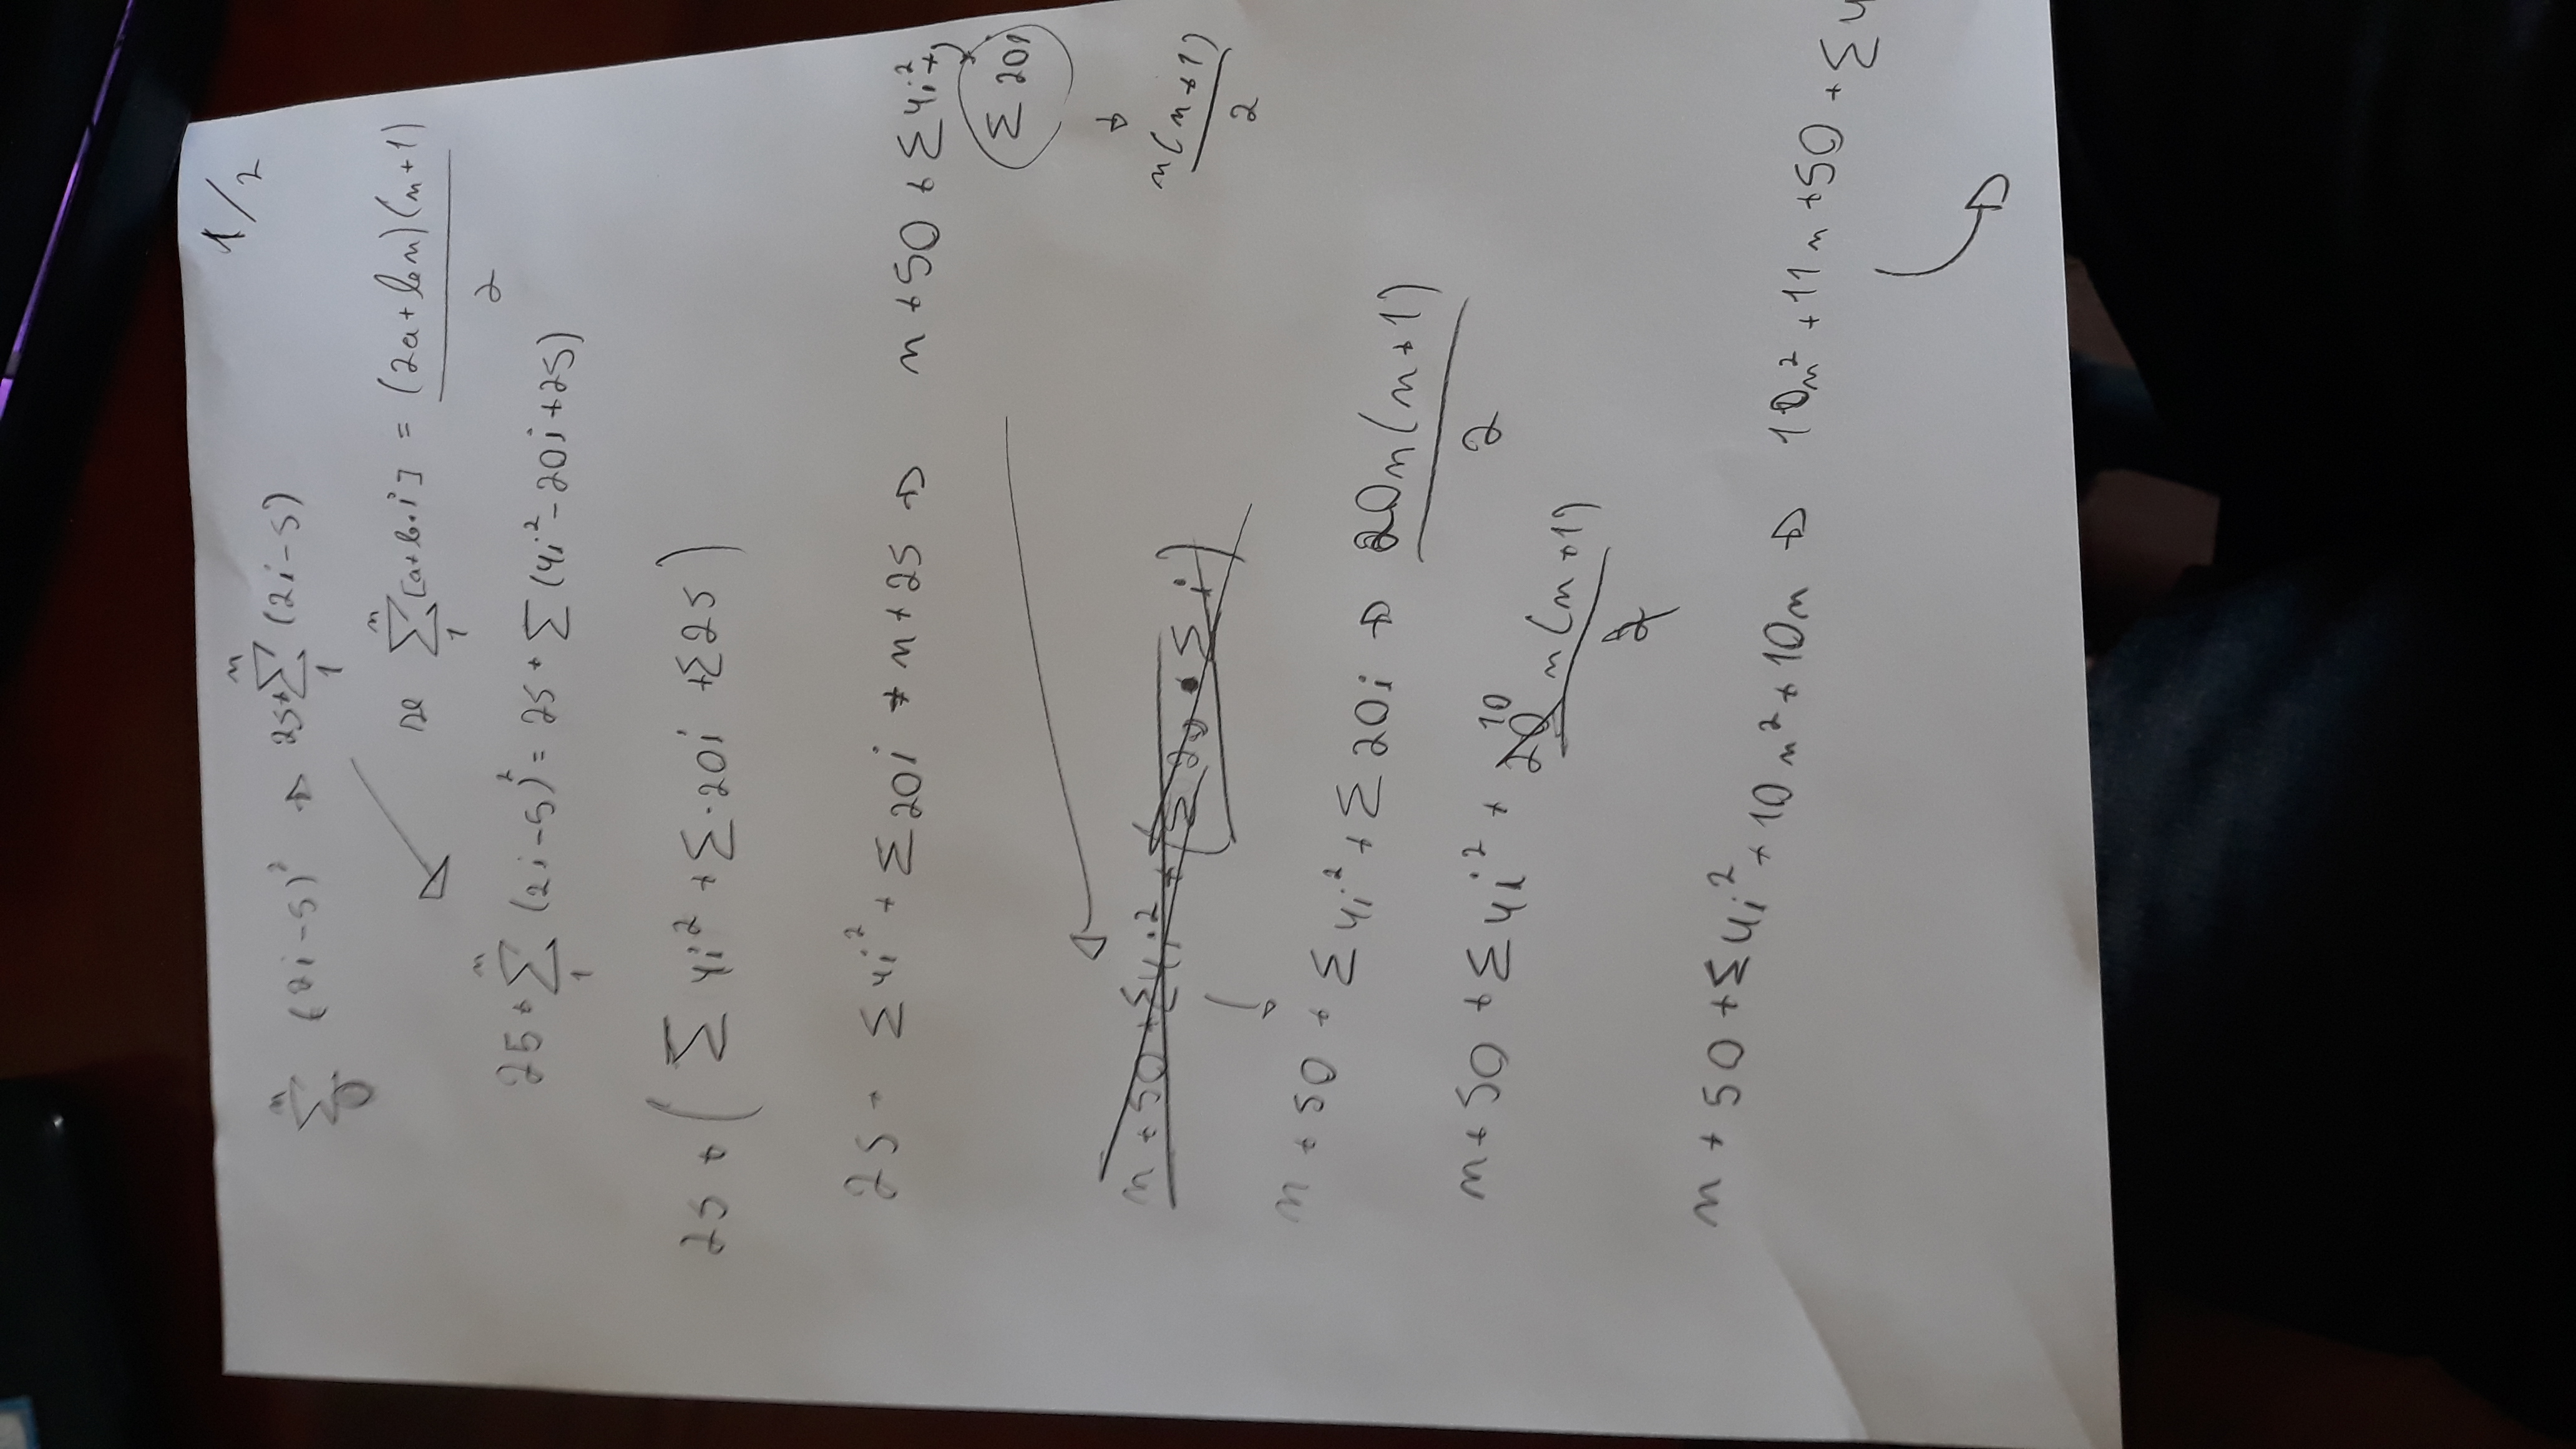 1/2
n∑0 (2i-5)² ⇒ 25+ n∑1 (2i-5)
De n∑1 [a+b.i] = (2a+bn)(n+1)/2
25 + n∑1 (2i-5)² = 25 + ∑(4i²-20i+25)
25 + (∑ 4i² + ∑-20i + ∑25)
25 + ∑4i² + ∑20i + n+25 ⇒ n+50 + ∑4i²+
∑ 20i
n(n+1)/2
n + 50 + ∑4i² + (∑20 • ∑i)
n + 50 + ∑4i² + ∑20i ⇒ 20n(n+1)/2
n+50 + ∑4i² + 20 10 n(n+1)/2
n + 50 + ∑4i² + 10n² + 10n ⇒ 10n² + 11n + 50 + ∑4